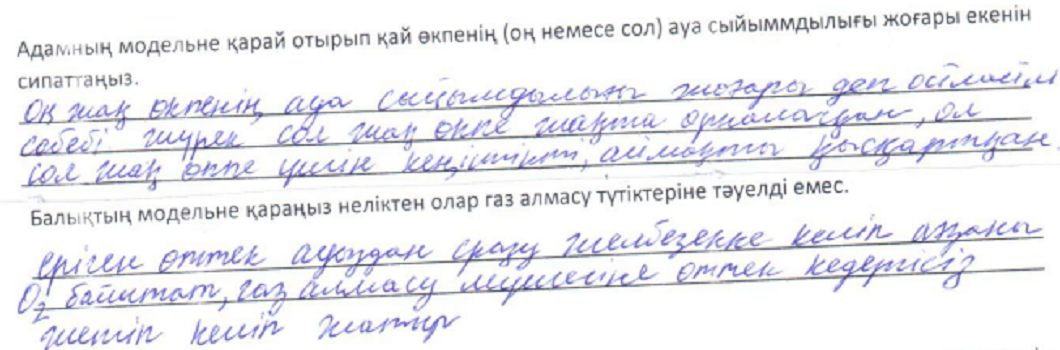 Адамның модельне қарай отырып қай өкпенің (оң немесе сол) ауа сыйыммдылығы жоғары екенін
сипаттаңыз.
Оң жақ өкпенің ауа сыйымдылығы жоғары деп ойлаймын
себебі жүрек сол жақ өкпе жақта орналасқан, ол
сол жақ өкпе үшін кеңістікті, аймақты қысқартқан.
Балықтың модельне қараңыз неліктен олар газ алмасу түтіктеріне тәуелді емес.
еріген оттек ауыздан сразу желбезекке келіп ағзаны
O₂ байытат, газ алмасу мүшесіне оттек кедергісіз
жетіп келіп жатыр